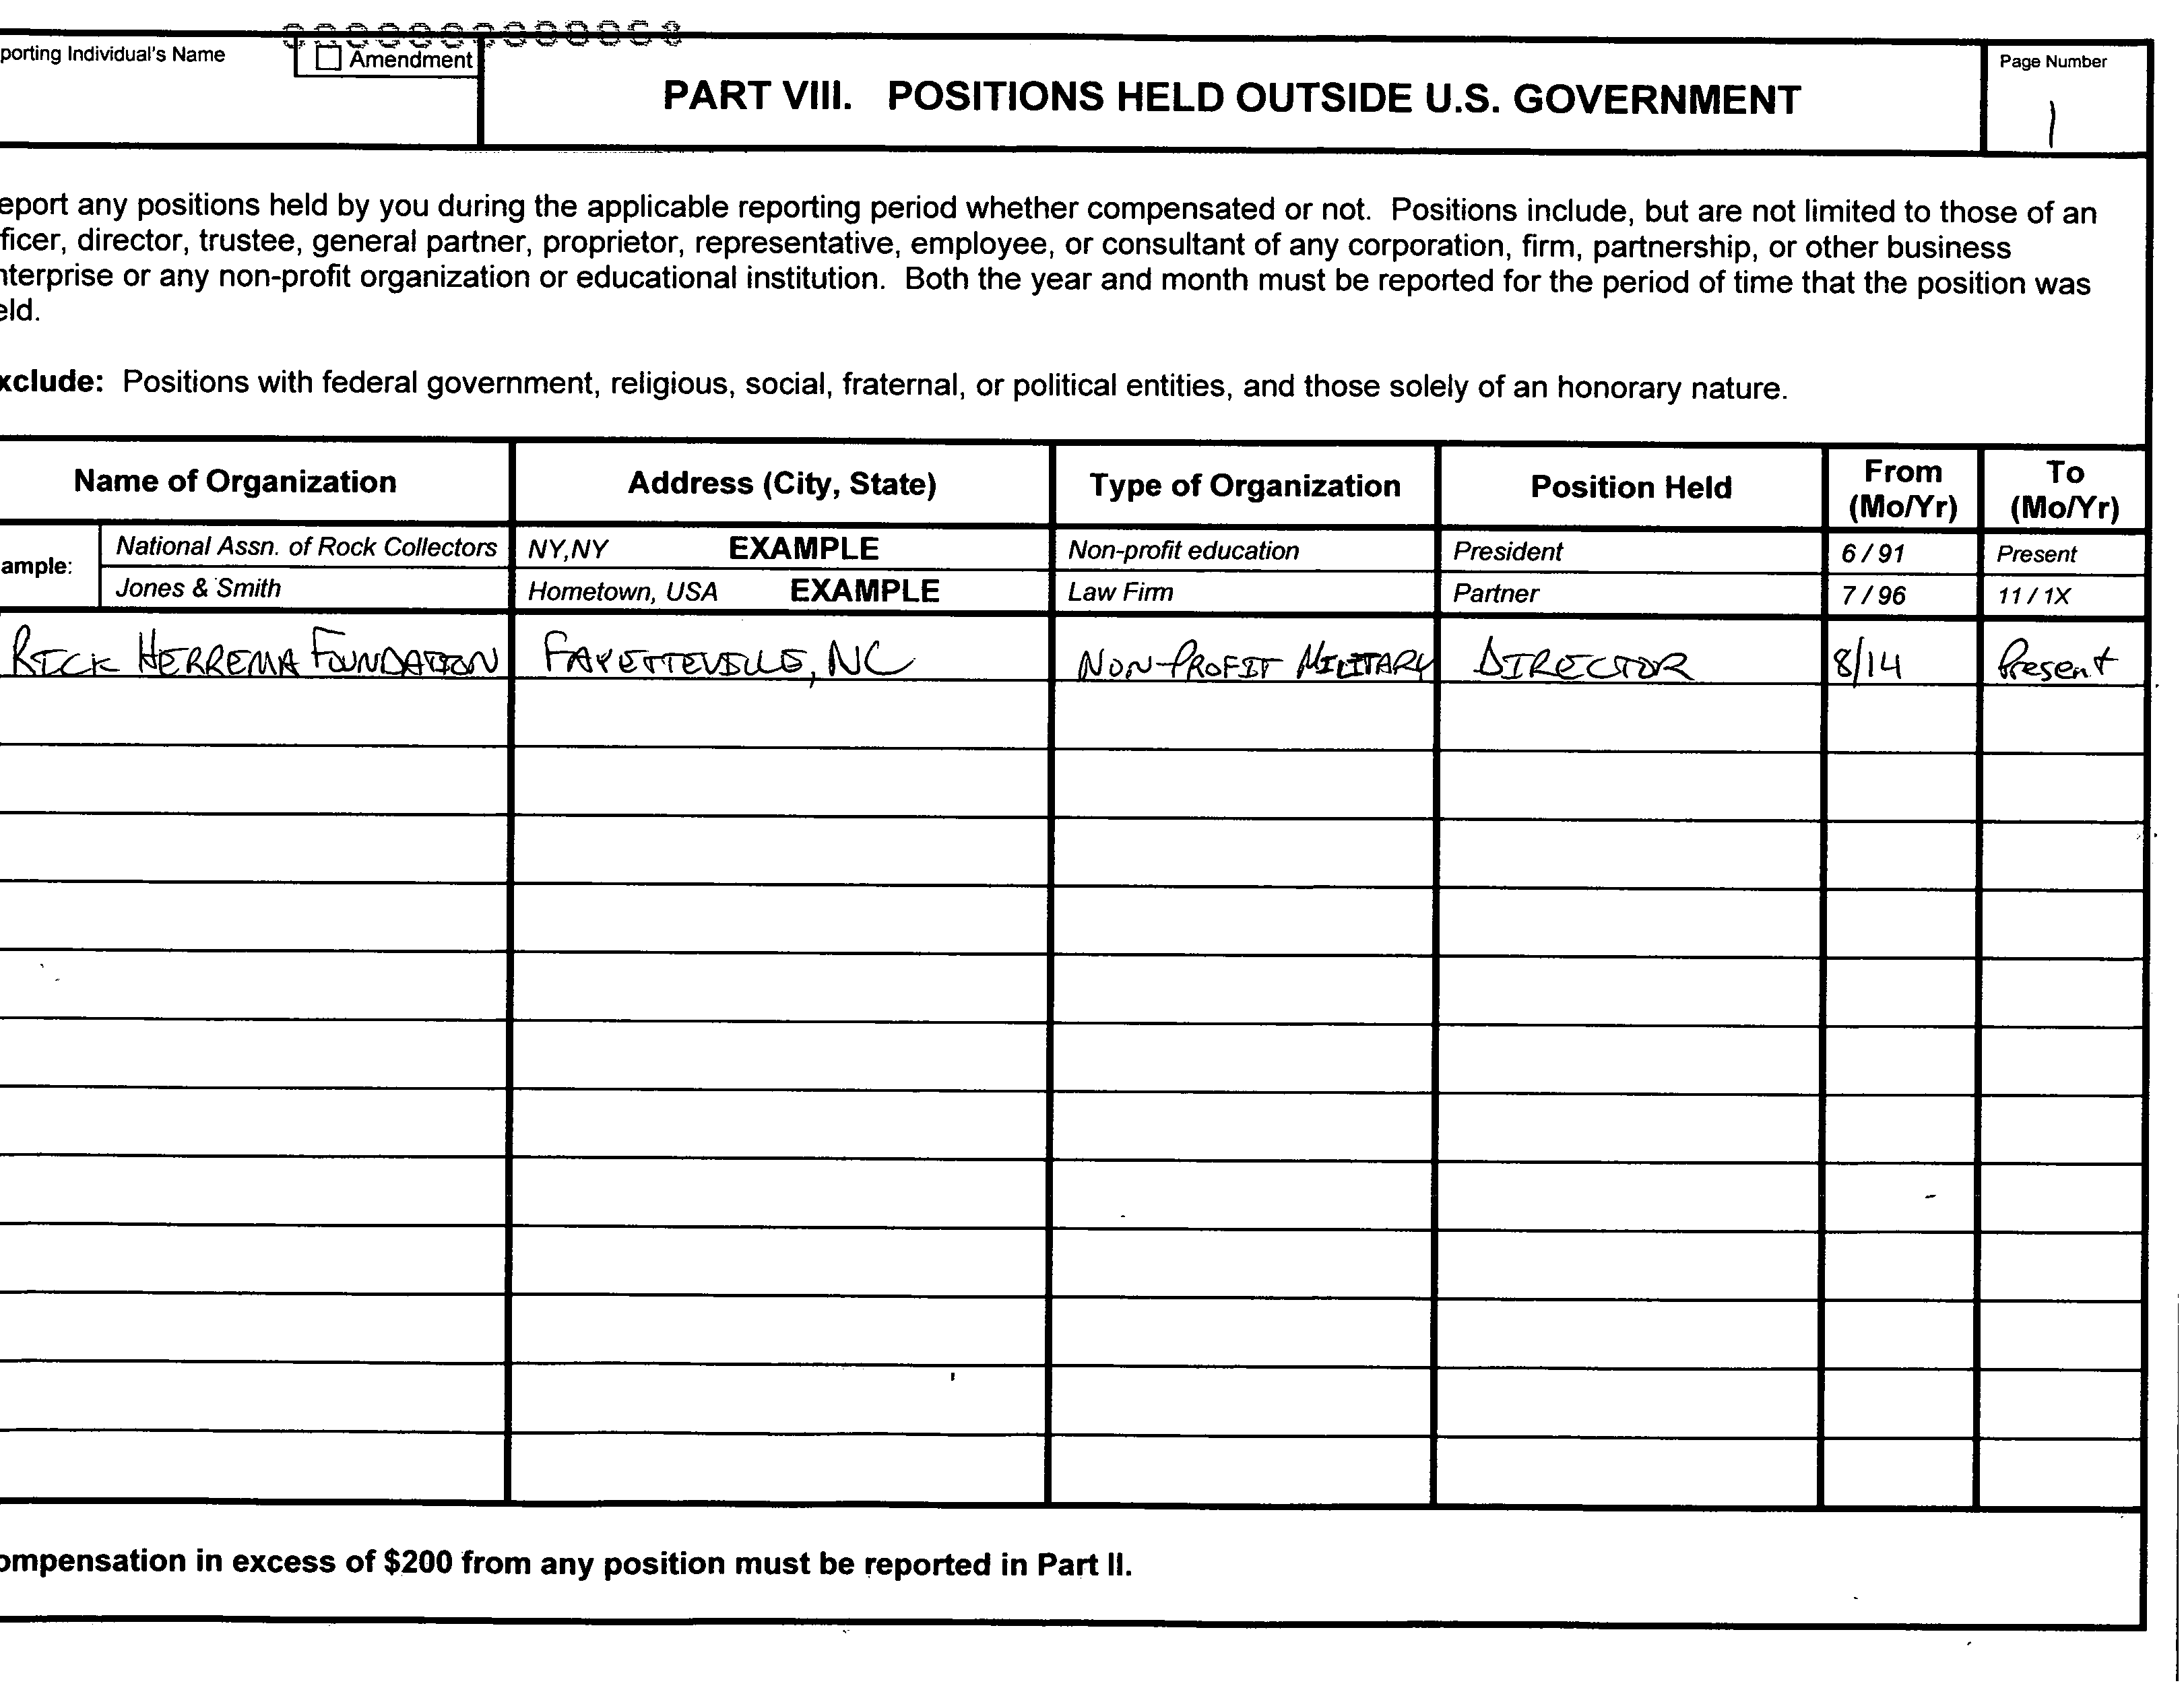 porting Individual's Name
Amendment
PART VIII. POSITIONS HELD OUTSIDE U.S. GOVERNMENT
Page Number
1
eport any positions held by you during the applicable reporting period whether compensated or not. Positions include, but are not limited to those of an
ficer, director, trustee, general partner, proprietor, representative, employee, or consultant of any corporation, firm, partnership, or other business
nterprise or any non-profit organization or educational institution. Both the year and month must be reported for the period of time that the position was
eld.
xclude: Positions with federal government, religious, social, fraternal, or political entities, and those solely of an honorary nature.
Name of Organization Address (City, State) Type of Organization Position Held From (Mo/Yr) To (Mo/Yr)
ample: National Assn. of Rock Collectors NY,NY EXAMPLE Non-profit education President 6 / 91 Present
Jones & Smith Hometown, USA EXAMPLE Law Firm Partner 7 / 96 11 / 1X
RICK HERREMA FOUNDATION FAYETTEVILLE, NC NON-PROFIT MILITARY DIRECTOR 8/14 Present
ompensation in excess of $200 from any position must be reported in Part II.